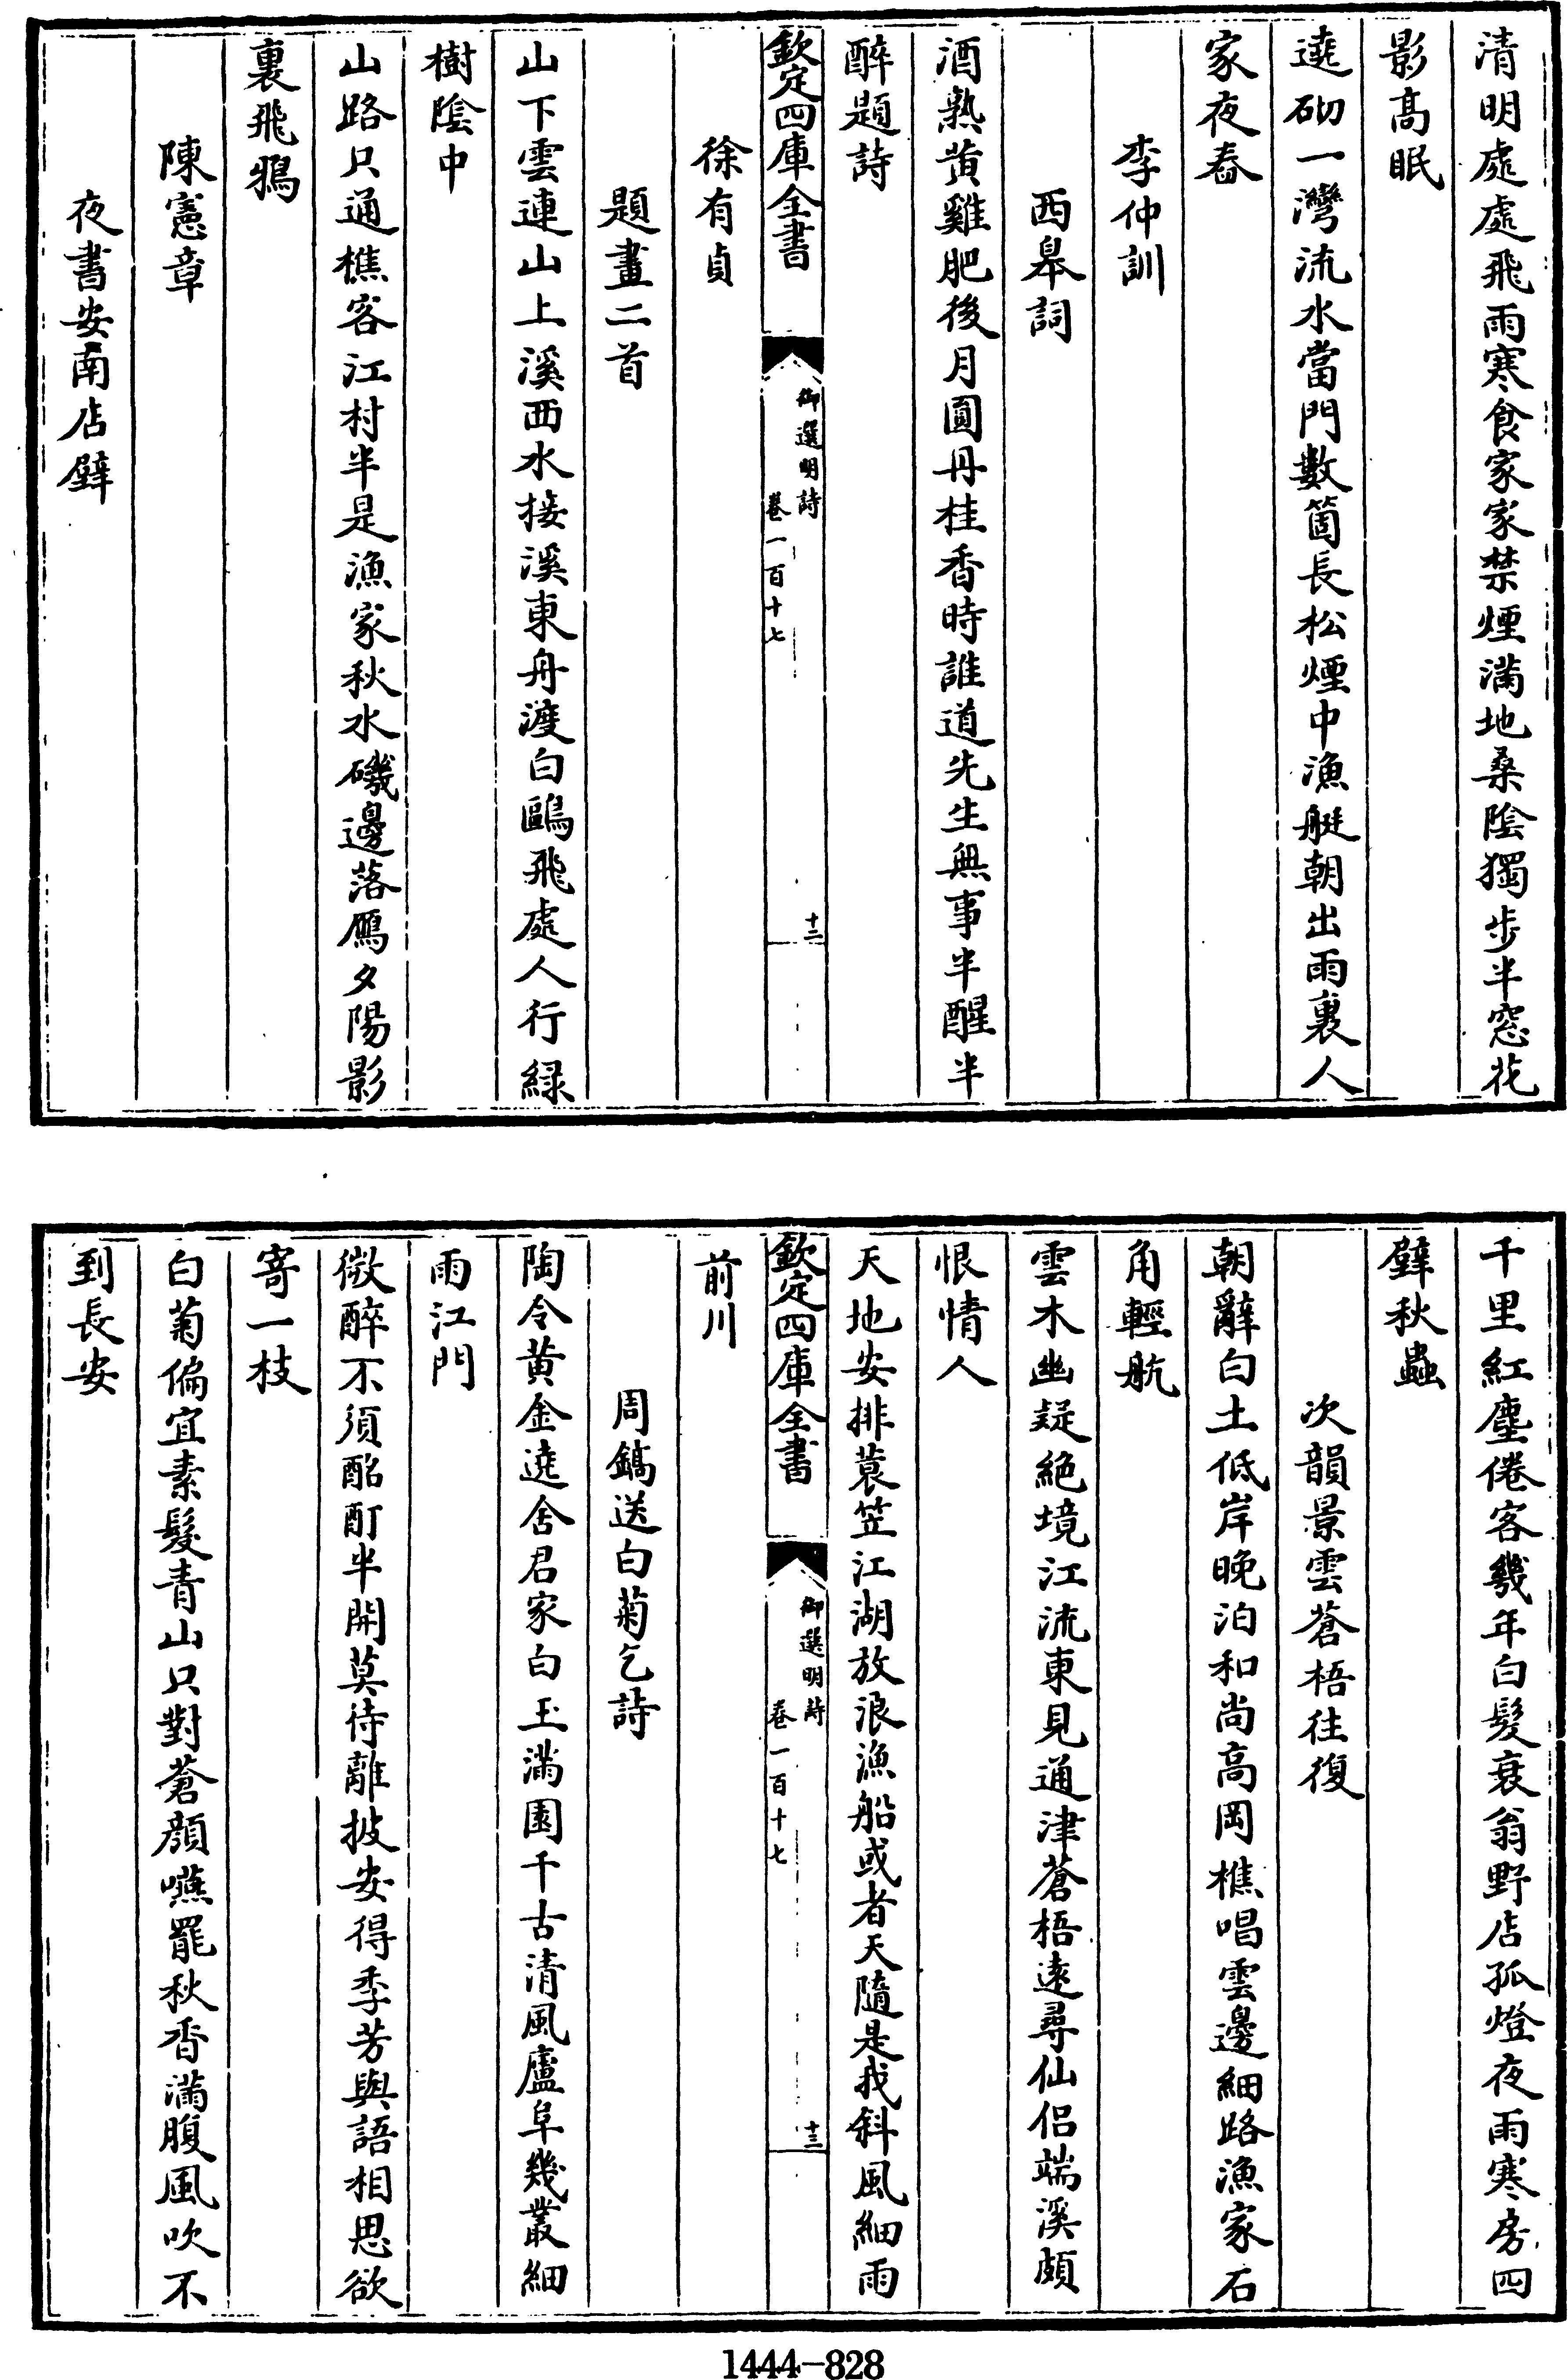 清明處處飛雨寒食家家禁煙滿地桑陰獨步半窓花
影高眠
遶砌一灣流水當門數箇長松煙中漁艇朝出雨裏人
家夜舂
李仲訓
西皋詞
酒熟黃雞肥後月圓丹桂香時誰道先生無事半醒半
醉題詩
欽定四庫全書
御選明詩
卷一百十七
十二
徐有貞
題畫二首
山下雲連山上溪西水接溪東舟渡白鷗飛處人行緑
樹陰中
山路只通樵客江村半是漁家秋水磯邊落鴈夕陽影
裏飛鴉
陳憲章
夜書安南店壁
千里紅塵倦客幾年白髮衰翁野店孤燈夜雨寒房四
壁秋蟲
次韻景雲蒼梧往復
朝辭白土低岸晚泊和尚高岡樵唱雲邊細路漁家石
角輕航
雲木幽疑絶境江流東見通津蒼梧遠尋仙侶端溪頗
恨情人
天地安排蓑笠江湖放浪漁船或者天隨是我斜風細雨
欽定四庫全書
御選明詩
卷一百十七
十三
前川
周鎬送白菊乞詩
陶令黃金遶舍君家白玉滿園千古清風廬阜幾叢細
雨江門
微醉不須酩酊半開莫待離披安得季芳與語相思欲
寄一枝
白菊偏宜素髮青山只對蒼顔嚥罷秋香滿腹風吹不
到長安
1444-828